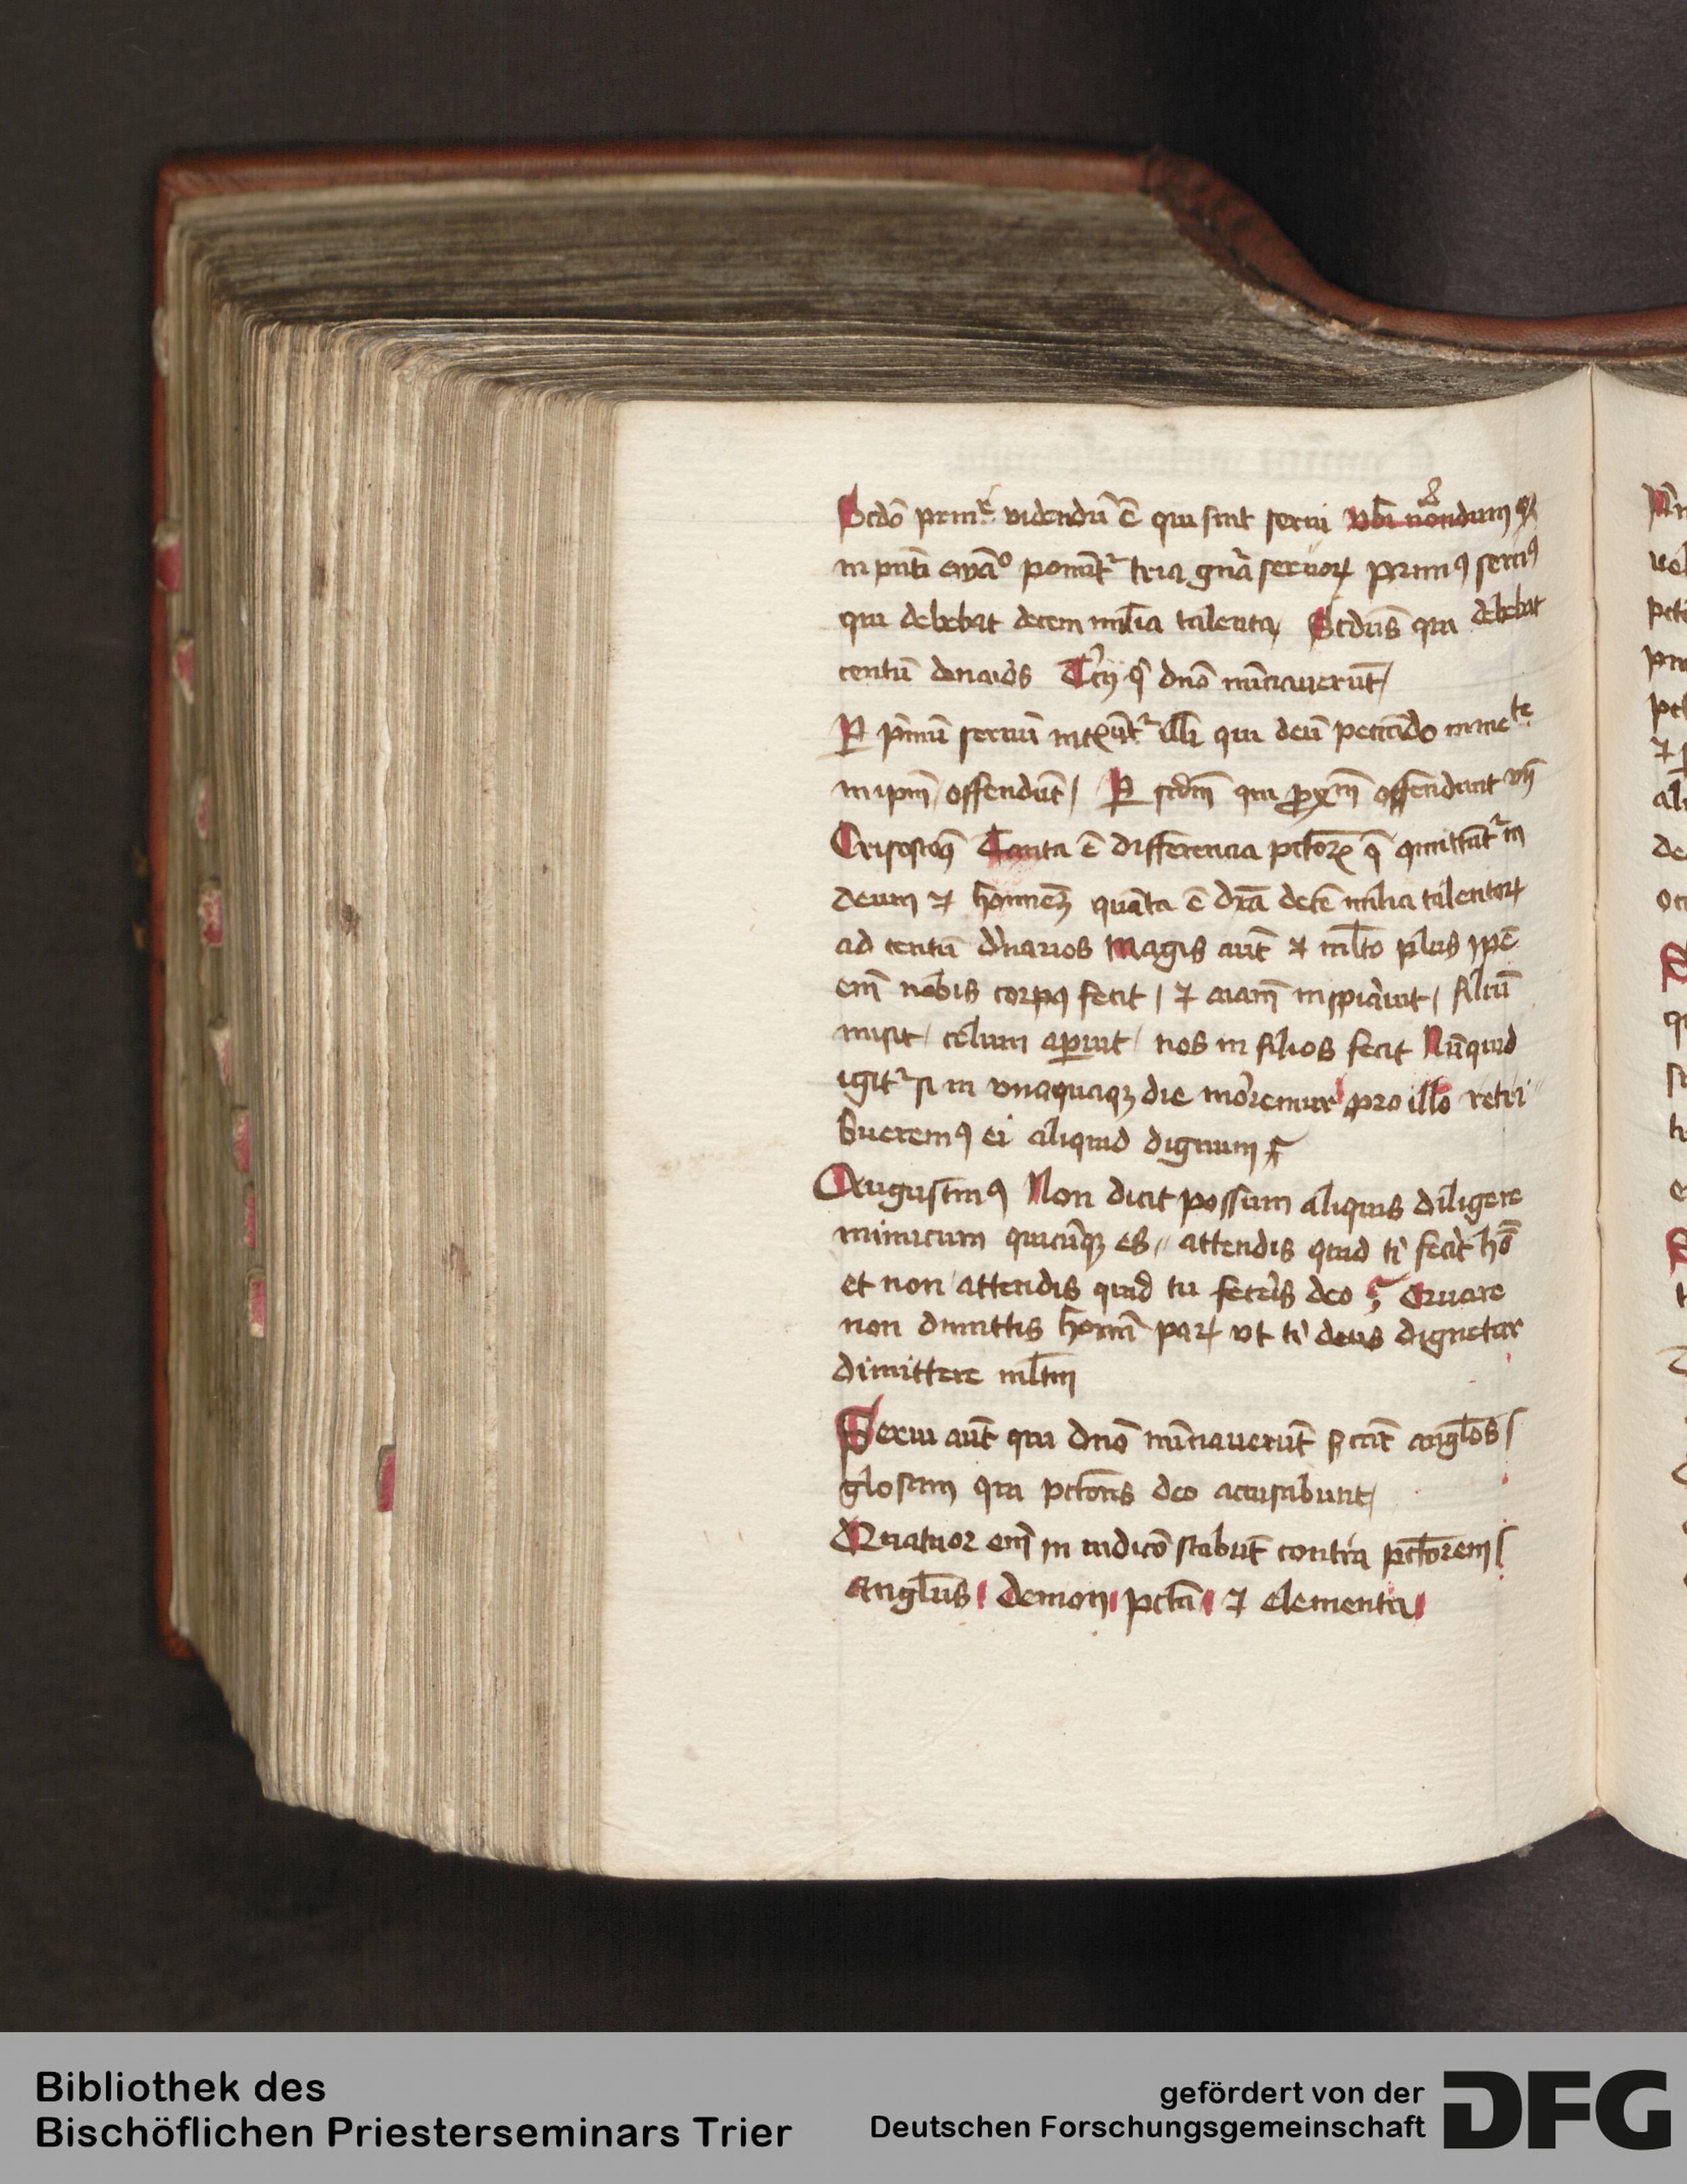 Scdo prin videndū ē qui sint serui vbi nōndum qr
in pnti ewāo ponūtr tria gnā seruor primꝰ seruꝰ
qui debebat decem milia talenta Scdus qui debebat
centū denarios Tcij q dno nūciauerūt
P pimū seruū intūtr illi qui deū peccādo inmete
in ipm offendūt / P scdm qui pxm offendunt vn
Crisostoꝰ Tanta ē differencia pctor q cmittūtr in
deum ⁊ hominē quāta ē dra decē milia talentor
ad centū denarios Magis aut ⁊ mlto plus ipe
em nobis corpꝰ fecit / ⁊ aiam inspirauit / filiū
misit / celum aperuit / nos in filios fecit Nūquid
igitr si in vnaquaqꝫ die moremur pro illo retri
bueremꝰ ei aliquid dignum
Augustinꝰ Non dicit possum aliquis diligere
inimicum quicūqꝫ es // attendis quid ti fecit ho
et non attendis quid tu feceris deo Quare
non dimittis homi par vt ti deus dignetur
dimittere mltm
Serui aut qui dno nūciauerūt sct anglos /
glosam qui pctoris deo accusabunt /
Quatuor em in iudico stabūt contra pctorem /
Anglus / demon / pctā / ⁊ elementa /
Bibliothek des
Bischöflichen Priesterseminars Trier
gefördert von der
Deutschen Forschungsgemeinschaft
DFG